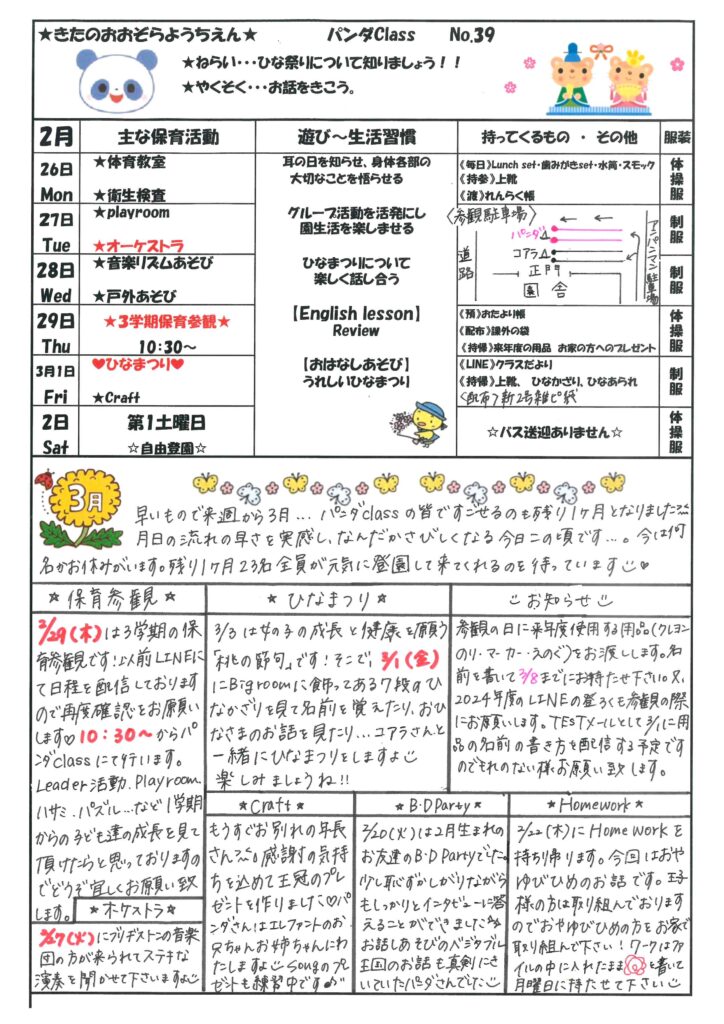 ★きたのおおぞらようちえん★ パンダClass No.39
★ねらい・・・ひな祭りについて知りましょう！！
★やくそく・・・お話をきこう。
2月 主な保育活動 遊び～生活習慣 持ってくるもの ・ その他 服装
26日 Mon
★体育教室
★衛生検査
耳の日を知らせ、身体各部の
大切なことを悟らせる
《毎日》Lunch set・歯みがきset・水筒・スモック
《持参》上靴
《渡》れんらく帳
体操服
27日 Tue
★playroom
★オーケストラ
グループ活動を活発にし
園生活を楽しませる
〈参観駐車場〉
パンダ
コアラ
道路
正門
園舎
アンパンマン駐車場
制服
28日 Wed
★音楽リズムあそび
★戸外あそび
ひなまつりについて
楽しく話し合う
制服
29日 Thu
★3学期保育参観★
10:30～
【English lesson】
Review
《預》おたより帳
《配布》課外の袋
《持帰》来年度の用品 お家の方へのプレゼント
体操服
3月1日 Fri
♥ひなまつり♥
★Craft
【おはなしあそび】
うれしいひなまつり
《LINE》クラスだより
《持帰》上靴、ひなかざり、ひなあられ
〈配布〉新2号雑ピ紙
制服
2日 Sat
第1土曜日
☆自由登園☆
☆バス送迎ありません☆
体操服
3月
早いもので来週から3月… パンダclassの皆ですごせるのも残り1ヶ月となりました
月日の流れの早さを実感し、なんだかさびしくなる今日この頃です…。今は何
名かお休みがいます。残り1ヶ月23名全員が元気に登園して来てくれるのを待っています♡
☆ 保育参観 ☆
2/29(木)は3学期の保
育参観です！以前LINEに
て日程を配信しております
ので再度確認をお願い
します♡10:30～からパ
ンダclassにて行います。
Leader活動、Playroom、
ハサミ、パズル…など1学期
からの子ども達の成長を見て
頂けたらと思っておりますの
でどうぞ宜しくお願い致
します。
☆オーケストラ☆
2/27(火)にブリヂストンの音楽
団の方が来られてステキな
演奏を聞かせて下さいますよ
☆ ひなまつり ☆
3/3は女の子の成長と健康を願う
「桃の節句」です！そこで、3/1(金)
にBigroomに飾ってある7段のひ
なかざりを見て名前を覚えたり、おひ
なさまのお話を見たり…コアラさんと
一緒にひなまつりをしますよ
楽しみましょうね！！
お知らせ
参観の日に来年度使用する用品(クレヨン
のり・マーカー・えのぐ)をお渡しします。名
前を書いて3/8までにお持たせ下さい。又、
2024年度のLINEの登ろくも参観の際
にお願いします。TESTメールとして3/1に用
品の名前の書き方を配信する予定です
のでそれのない様お願い致します。
☆Craft☆
もうすぐお別れの年長
さん 感謝の気持
ちを込めて王冠のプレ
ゼントを作りました♡パ
ンダさんはエレファントのお
兄ちゃんお姉ちゃんにわ
たしますよ Songのプレ
ゼントも練習中です
☆B・D Party☆
2/20(火)は2月生まれの
お友達のB・D Partyでした。
少し恥ずかしがりながら
もしっかりとインタビューに答
えることができました
お話しあそびのベジタブル
王国のお話も真剣にき
いていたパンダさんでした
☆Homework☆
2/22(木)にHomeworkを
持ち帰ります。今回はおや
ゆびひめのお話です。王子
様の方は取り組んでおります
のでおやゆびひめの方をお家で
取り組んで下さい！ワークはファ
イルの中に入れたまま を書いて
月曜日に持たせて下さい